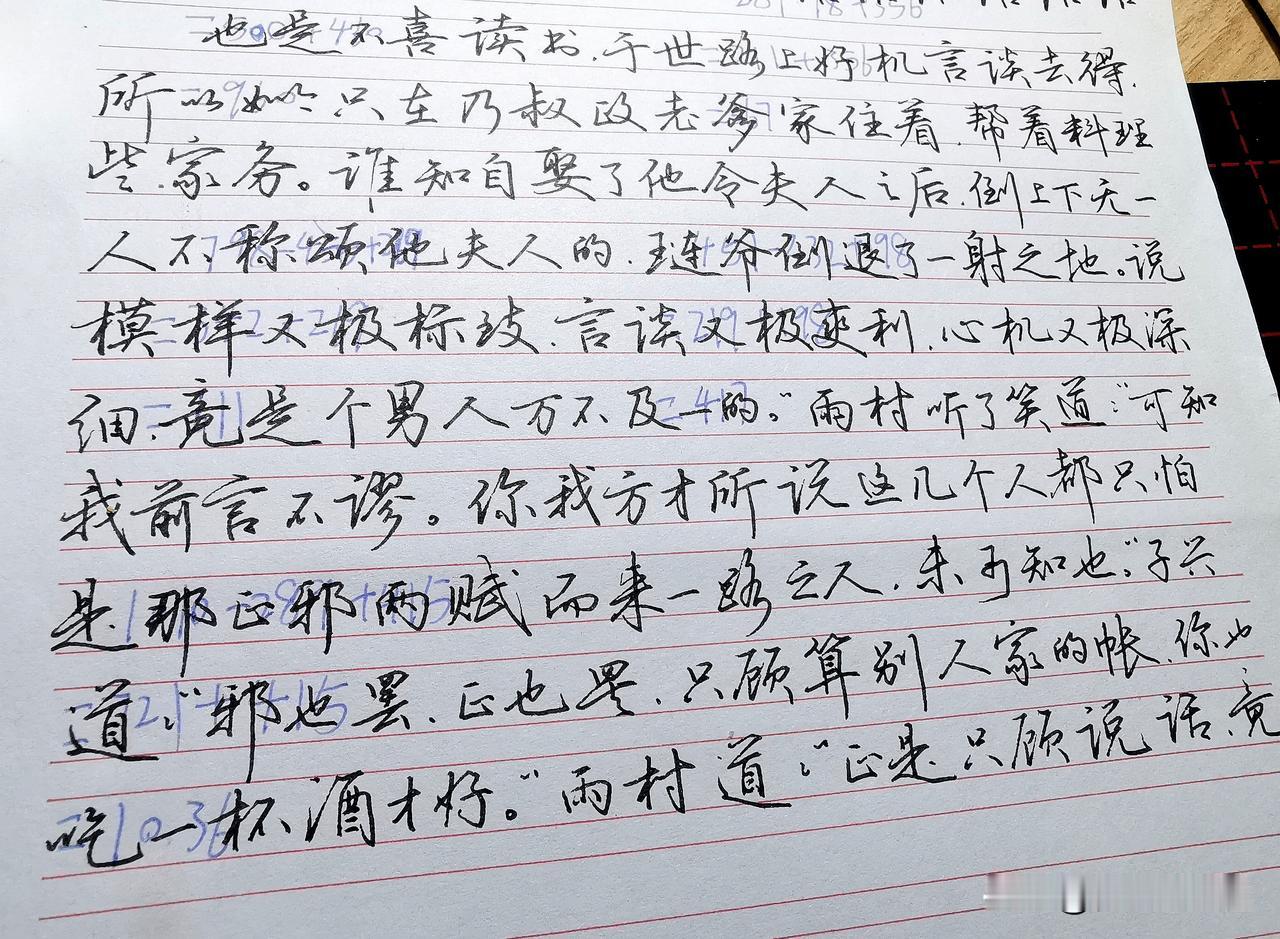 也是不喜读书，于世路上好机言谈去得，
所以如今只在乃叔政老爹家住着，帮着料理
些家务。谁知自娶了他令夫人之后，倒上下无一
人不称颂他夫人的，琏爷倒退了一射之地。说
模样又极标致，言谈又极爽利，心机又极深
细，竟是个男人万不及一的。”雨村听了笑道：“可知
我前言不谬。你我方才所说这几个人都只怕
是那正邪两赋而来一路之人，未可知也。”子兴
道：“邪也罢，正也罢，只顾算别人家的帐，你也
吃一杯酒才好。”雨村道：“正是只顾说话，竟